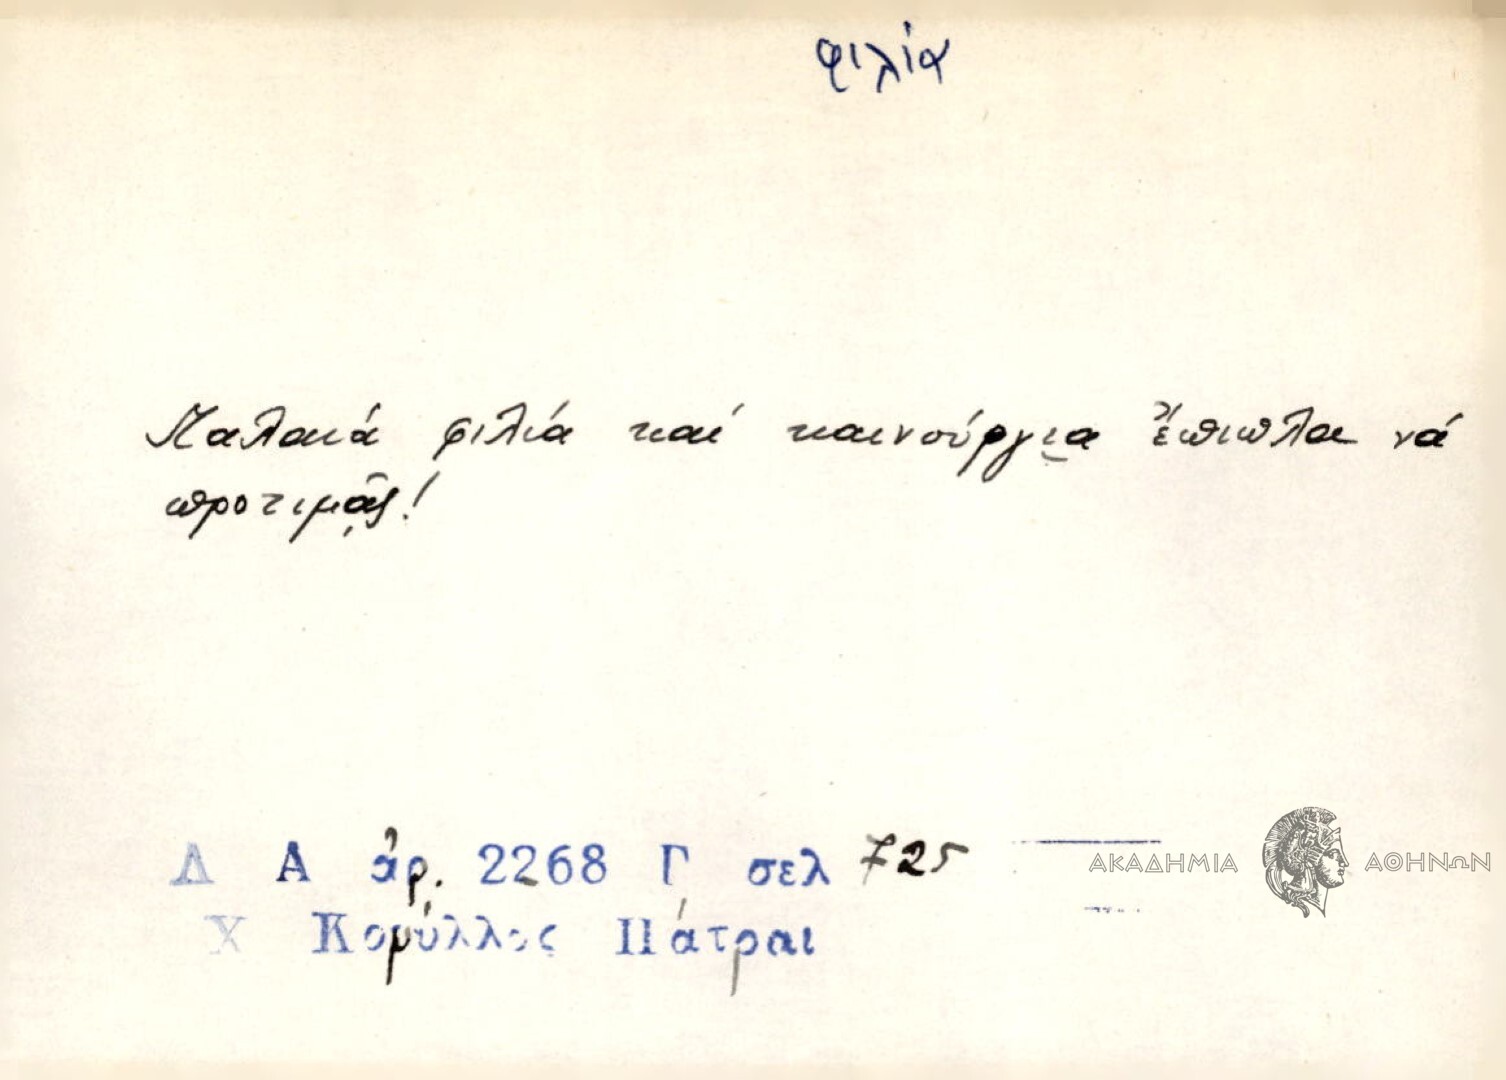 φιλία
Παλαιά φιλία καί καινούργια ἔπιπλα νά
προτιμᾷς!
Λ Α ἀρ. 2268 Γ σελ 725
Χ Κορύλλος Πάτραι
ΑΚΑΔΗΜΙΑ ΑΘΗΝΩΝ